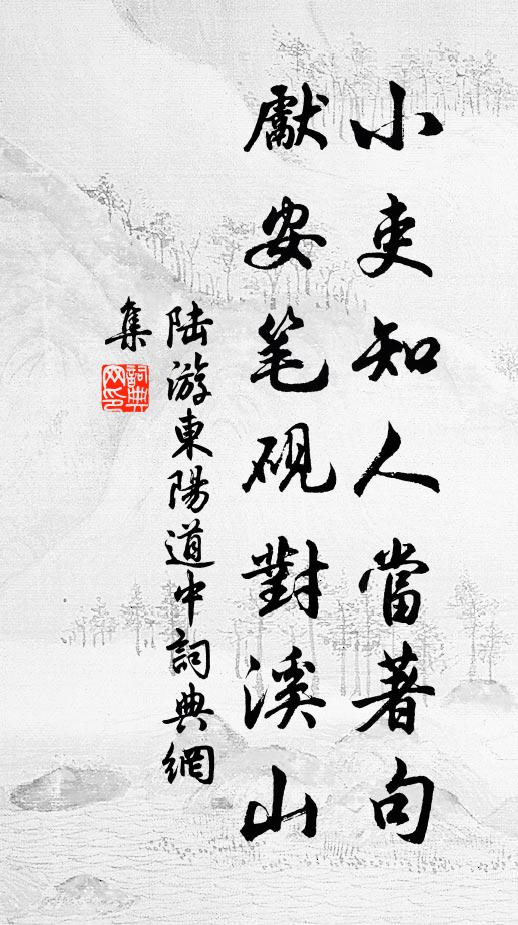 小吏知人當著句
獻安笔硯對溪山
陆游東陽道中詞典網
集
詞典
网印